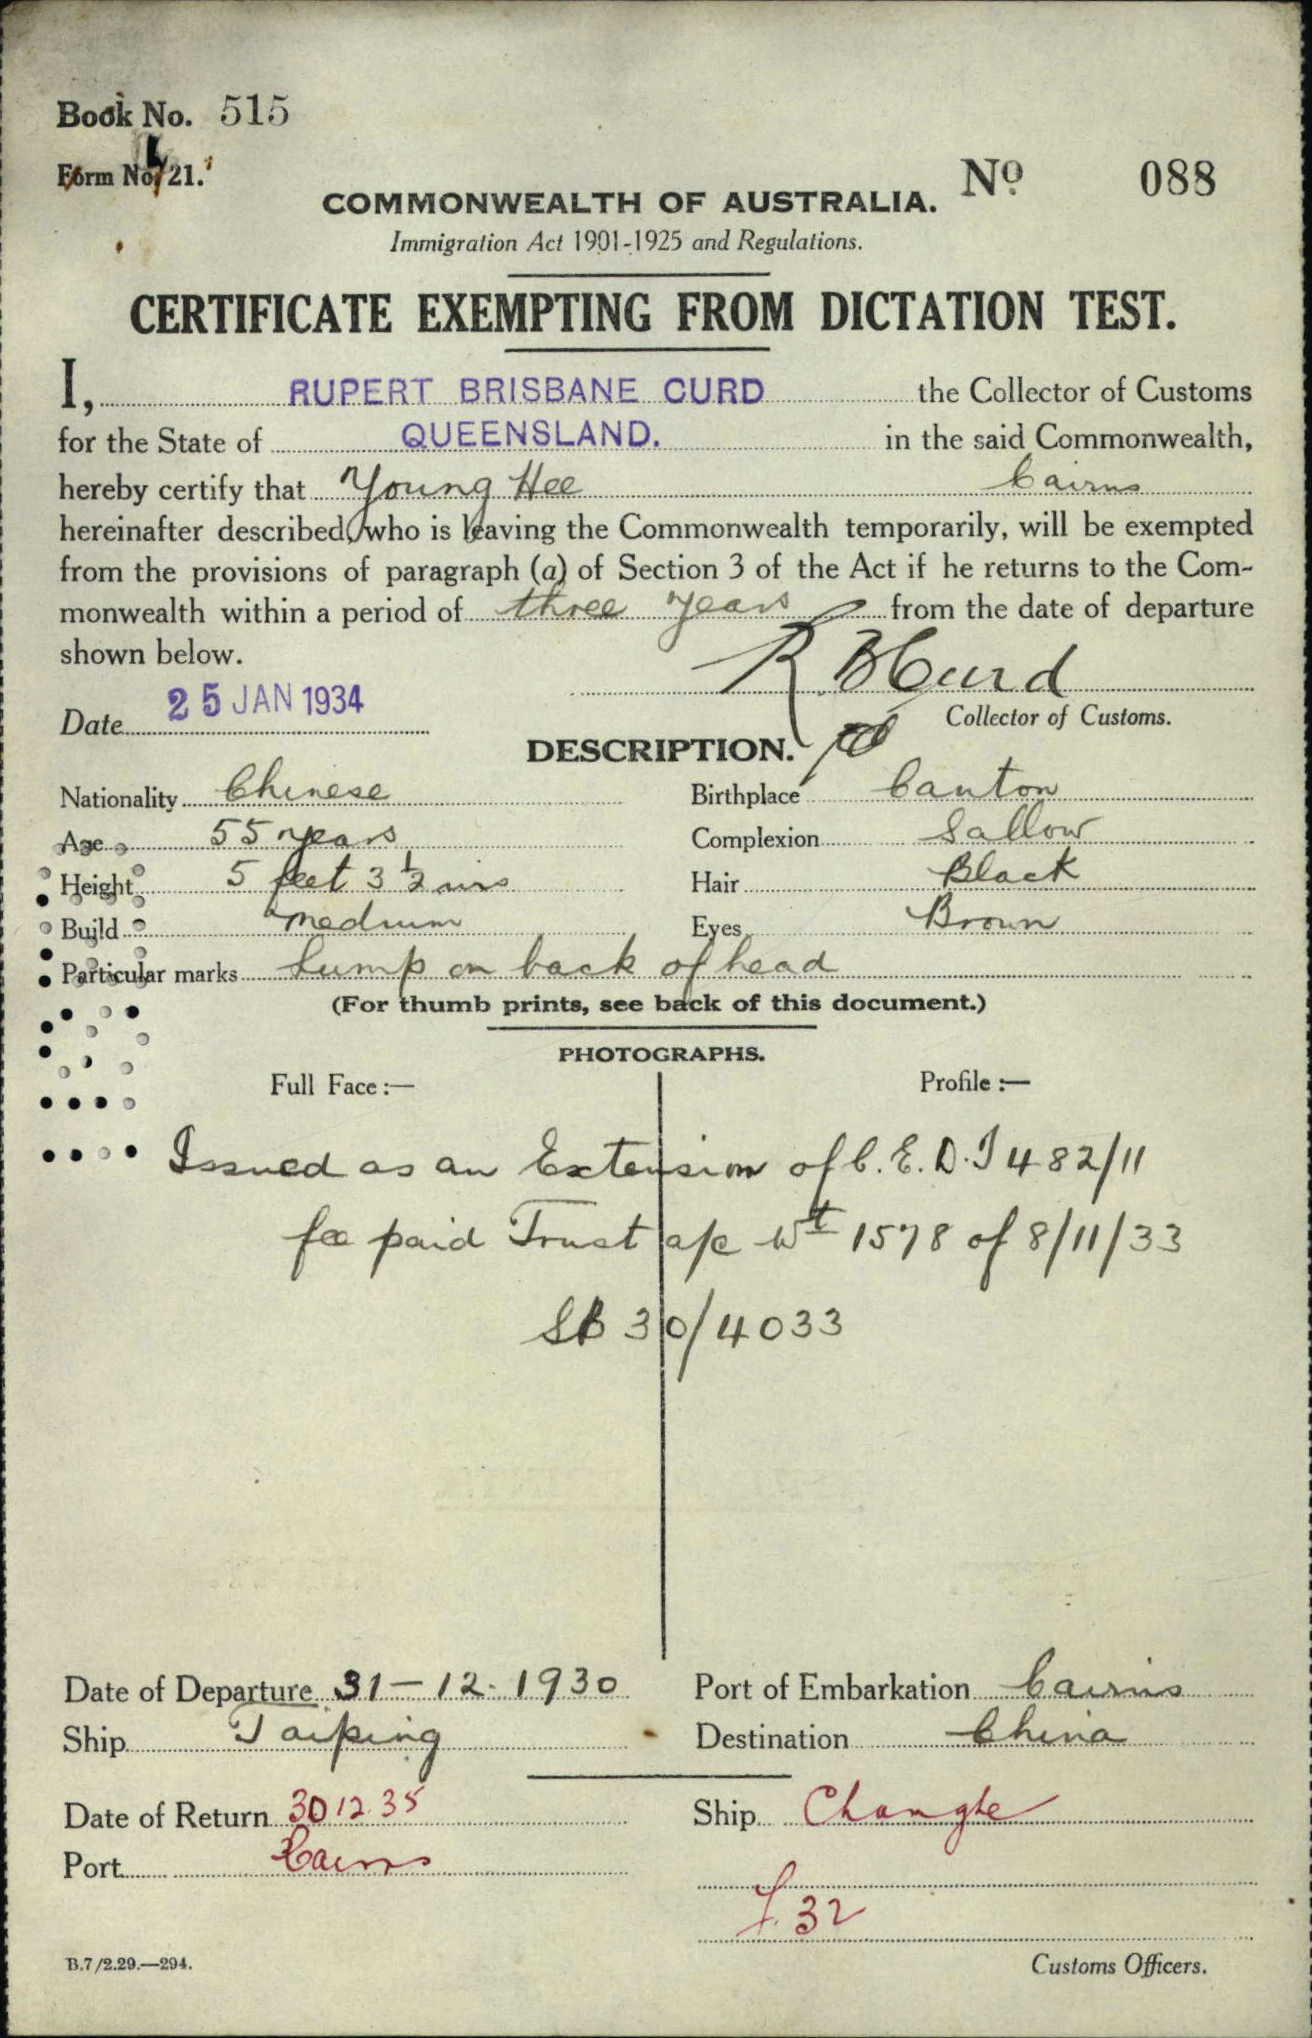 Book No. 515
Form No. 21.
No 088
COMMONWEALTH OF AUSTRALIA.
Immigration Act 1901-1925 and Regulations.
CERTIFICATE EXEMPTING FROM DICTATION TEST.
I, RUPERT BRISBANE CURD the Collector of Customs
for the State of QUEENSLAND. in the said Commonwealth,
hereby certify that Young Hee Cairns
hereinafter described, who is leaving the Commonwealth temporarily, will be exempted
from the provisions of paragraph (a) of Section 3 of the Act if he returns to the Com-
monwealth within a period of three years from the date of departure
shown below.
R B Curd
Date 25 JAN 1934
Collector of Customs.
DESCRIPTION.
Nationality Chinese Birthplace Canton
Age 55 years Complexion Sallow
Height 5 feet 3 1/2 ins Hair Black
Build medium Eyes Brown
Particular marks Lump on back of head
(For thumb prints, see back of this document.)
PHOTOGRAPHS.
Full Face :— Profile :—
Issued as an Extension of C.E.D.T 482/11
fee paid Trust a/c Wt 1578 of 8/11/33
SB 30/4033
Date of Departure 31-12-1930 Port of Embarkation Cairns
Ship Taiping Destination China
Date of Return 30 12.35 Ship Changte
Port Cairns
F. 32
B.7/2.29.—294.
Customs Officers.